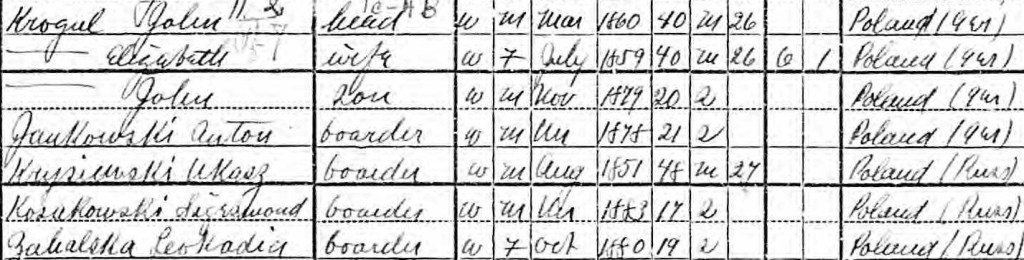 Krogul John head W m Mar 1860 40 m 26 Poland (Ger)
— Elizabeth wife W F July 1859 40 m 26 6 1 Poland (Ger)
— John son W m Nov 1879 20 S Poland (Ger)
Jankowski Anton boarder W m Un 1878 21 S Poland (Ger)
boarder W m Aug 1851 48 m 27 Poland (Russ)
Kosakowski Sigesmond boarder W m Un 1883 17 S Poland (Russ)
Zabalska Leokadia boarder W F Oct 1880 19 S Poland (Russ)